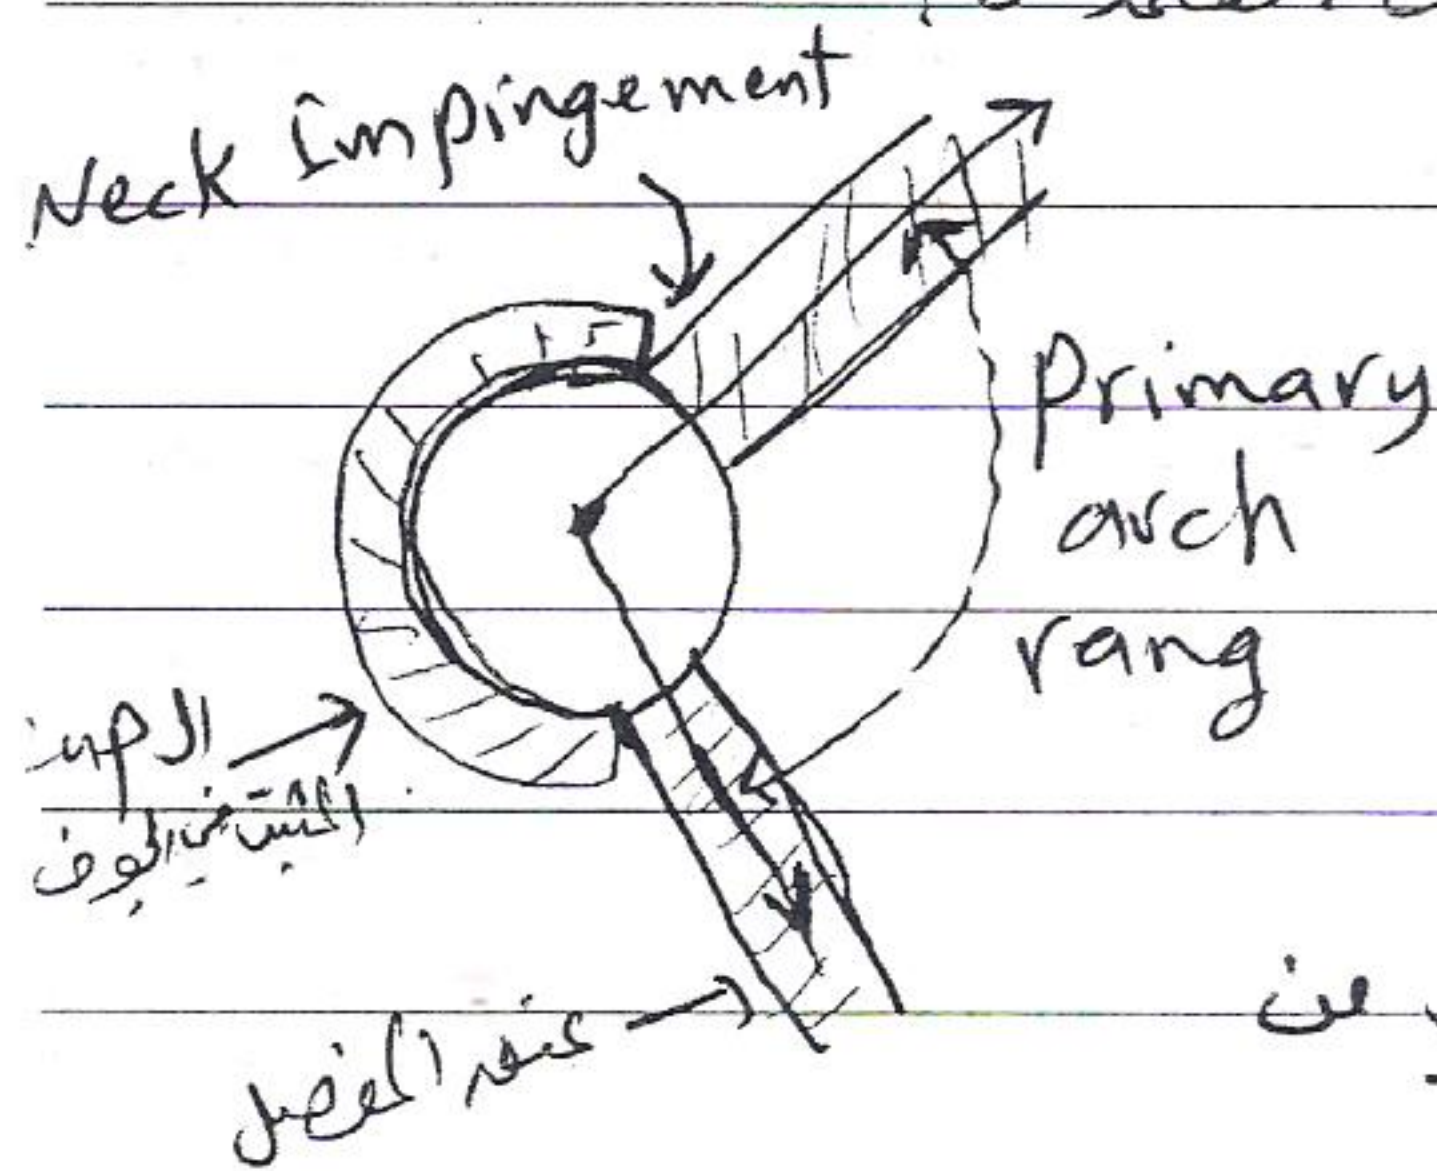 Neck Impingement
Primary
arch
rang
الـ cup
المثبت في الحوض
عنق المفصل
من